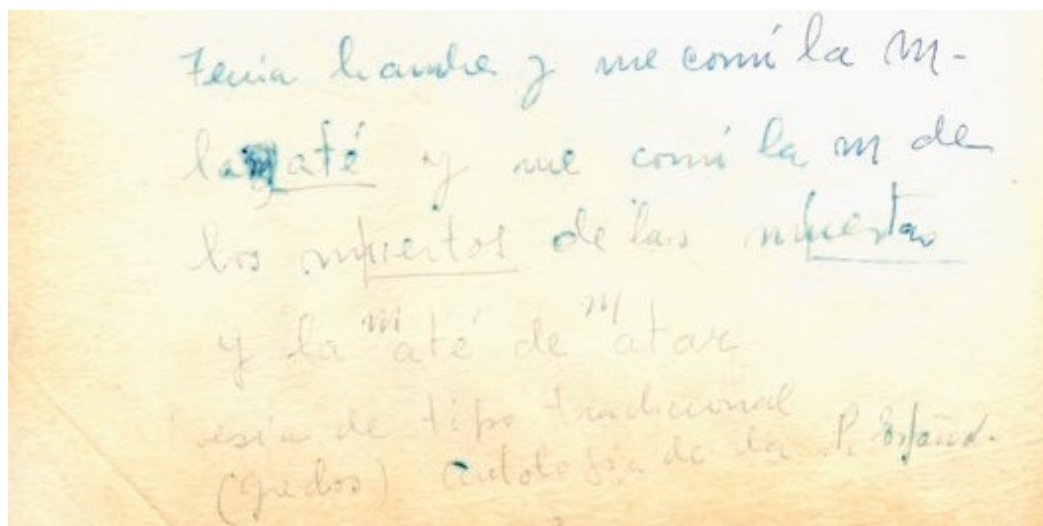 Tenia hambre y me comí la m-
la maté y me comí la m de
los muertos de las muertas
y la maté de matar
Poesía de tipo tradicional
(Gredos) Antología de la P. Españ.